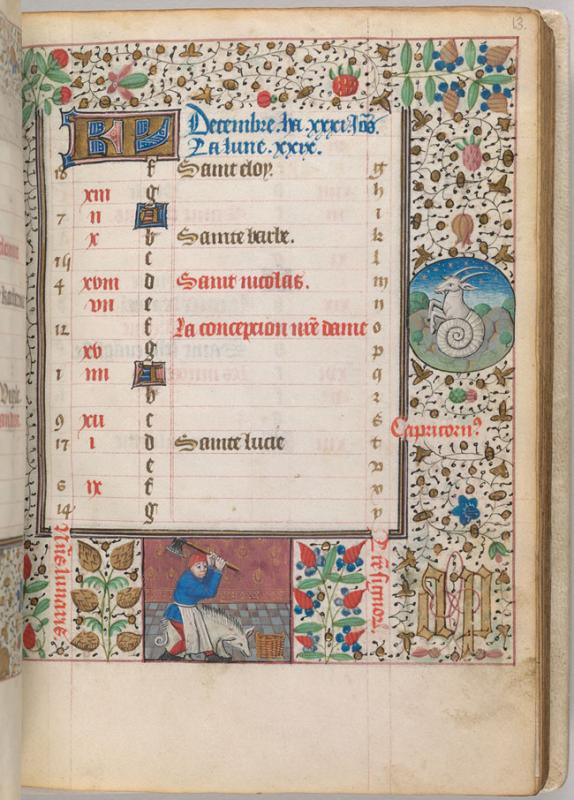 13.
KL Decembre. ha .xxxi. Jo's.
La lune .xxix.
18 f Saint eloy. g
xiii g h
7 ii A i
x b Sainte barbe. k
15 c l
4 xviii d Saint nicolas. m
vii e n
12 f La conception nr̃e dame o
xv g p
1 iiii A q
b r
9 xii c s
17 i d Sainte lucie t
e v
6 ix f x
14 g y
Capricorn9
lunaire